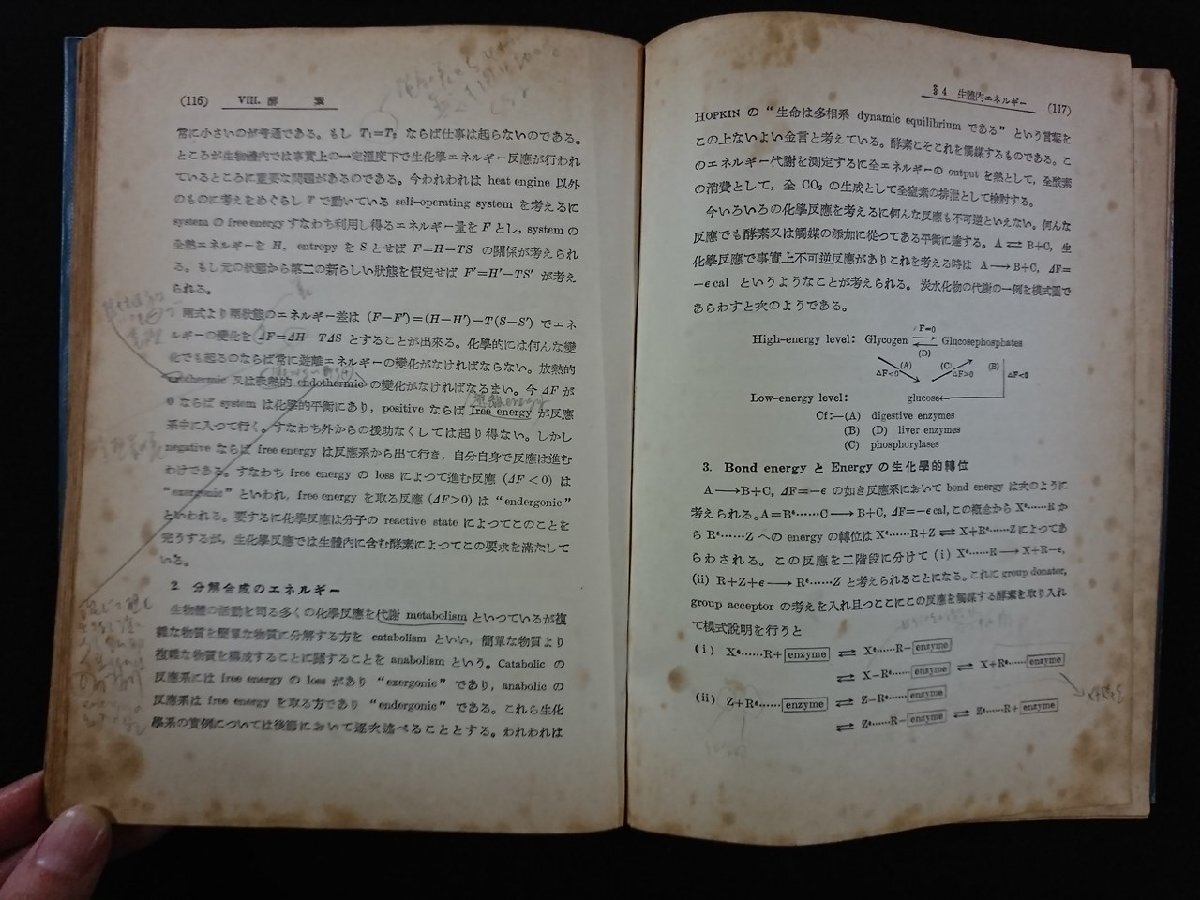 (116) VIII. 酵 素
常に小さいのが普通である。もし T₁=T₂ ならば仕事は起らないのである。
ところが生物體内では事實上の一定溫度下で生化學エネルギー反應が行われ
ているところに重要な問題があるのである。今われわれは heat engine 以外
のものに考えをめぐらし F で動いている self-operating system を考えるに
system の free energy すなわち利用し得るエネルギー量を F とし, system の
全熱エネルギーを H, entropy を S とせば F=H−TS の關係が考えられ
る。もし元の狀態から第二の新らしい狀態を假定せば F'=H'−TS' が考え
られる。
兩式より兩狀態のエネルギー差は (F−F')=(H−H')−T(S−S') でエネ
ルギーの變化を ΔF=ΔH−TΔS とすることが出來る。化學的には何んな變
化でも起るのならば常に遊離エネルギーの變化がなければならない。放熱的
exothermic 又は吸熱的 endothermic の變化がなければなるまい。今 ΔF が
0 ならば system は化學的平衡にあり, positive ならば free energy が反應
系中に入つて行く。すなわち外からの援功なくしては起り得ない。しかし
negative ならば free energy は反應系から出て行き, 自分自身で反應は進む
わけである。すなわち free energy の loss によつて進む反應 (ΔF<0) は
"exergonic" といわれ, free energy を取る反應 (ΔF>0) は "endergonic"
といわれる。要するに化學反應は分子の reactive state によつてこのことを
完うするが, 生化學反應では生體内に含む酵素によつてこの要求を滿たして
いる。
2 分解合成のエネルギー
生物體の活動を司る多くの化學反應を代謝 metabolism といつているが複
雜な物質を簡單な物質に分解する方を catabolism といい, 簡單な物質より
複雜な物質を構成することに關することを anabolism という。Catabolic の
反應系には free energy の loss があり "exergonic" であり, anabolic の
反應系は free energy を取る方であり "endergonic" である。これら生化
學系の實例については後節において逐次述べることとする。われわれは
§4 生體内エネルギー (117)
HOPKIN の "生命は多相系 dynamic equilibrium である" という言葉を
この上ないよい金言と考えている。酵素こそこれを觸媒するものである。こ
のエネルギー代謝を測定するに全エネルギーの output を熱として, 全酸素
の消費として, 全 CO₂ の生成として全窒素の排泄として檢討する。
今いろいろの化學反應を考えるに何んな反應も不可逆といえない。何んな
反應でも酵素又は觸媒の添加に從つてある平衡に達する。A ⇄ B+C, 生
化學反應で事實上不可逆反應がありこれを考える時は A ⟶ B+C, ΔF=
−ϵ cal というようなことが考えられる。炭水化物の代謝の一例を模式圖で
あらわすと次のようである。
F=0
High-energy level: Glycogen ⇄ Glucosephosphates
(D)
ΔF<0 (A) (C) ΔF>0 (B) ΔF<0
Low-energy level: glucose
Cf:—(A) digestive enzymes
(B) (D) liver enzymes
(C) phosphorylases
3. Bond energy と Energy の生化學的轉位
A ⟶ B+C, ΔF=−ϵ の如き反應系において bond energy は次のように
考えられる。A=Bᵉ……C ⟶ B+C, ΔF=−ϵ cal, この概念から Xᵉ……R か
ら Rᵉ……Z への energy の轉位は Xᵉ……R+Z ⇄ X+Rᵉ……Z によつてあ
らわされる。この反應を二階段に分けて (i) Xᵉ……R ⟶ X+R−ϵ,
(ii) R+Z+ϵ ⟶ Rᵉ……Z と考えられることになる。これに group donater,
group acceptor の考えを入れ且つここにこの反應を觸媒する酵素を取り入れ
て模式說明を行うと
(i) Xᵉ……R+enzyme ⇄ Xᵉ……R−enzyme
⇄ X−Rᵉ……enzyme ⇄ X+Rᵉ……enzyme
(ii) Z+Rᵉ……enzyme ⇄ Z−Rᵉ……enzyme
⇄ Zᵉ……R−enzyme ⇄ Zᵉ……R+enzyme